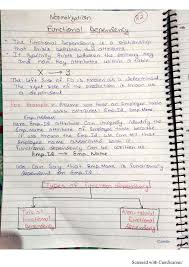 Normalization
Functional Dependency
The functional dependency is a relationship
that exists between two attributes.
It typically exists between the primary key
and non key attribute within a table
X → Y
The left side of FD is known as a determinant
The right side of the production is known as
a dependent.
For Example :- Assume we have an Employee table
with attributes Emp-Id, Emp-Name,
Emp. Address
Here Emp.Id attribute can uniquely identify the
Emp.name attribute of Employee table because
if we know the Emp.Id we can
employee name associated with it
Functional dependency can be written as
Emp.Id → Emp. Name
We can say that Emp. Name is functionally
dependent on Emp.Id
Types of Function dependency
Trivial
Functional
Dependency
Non-trivial
Functional
Dependency
Scanned with CamScanner